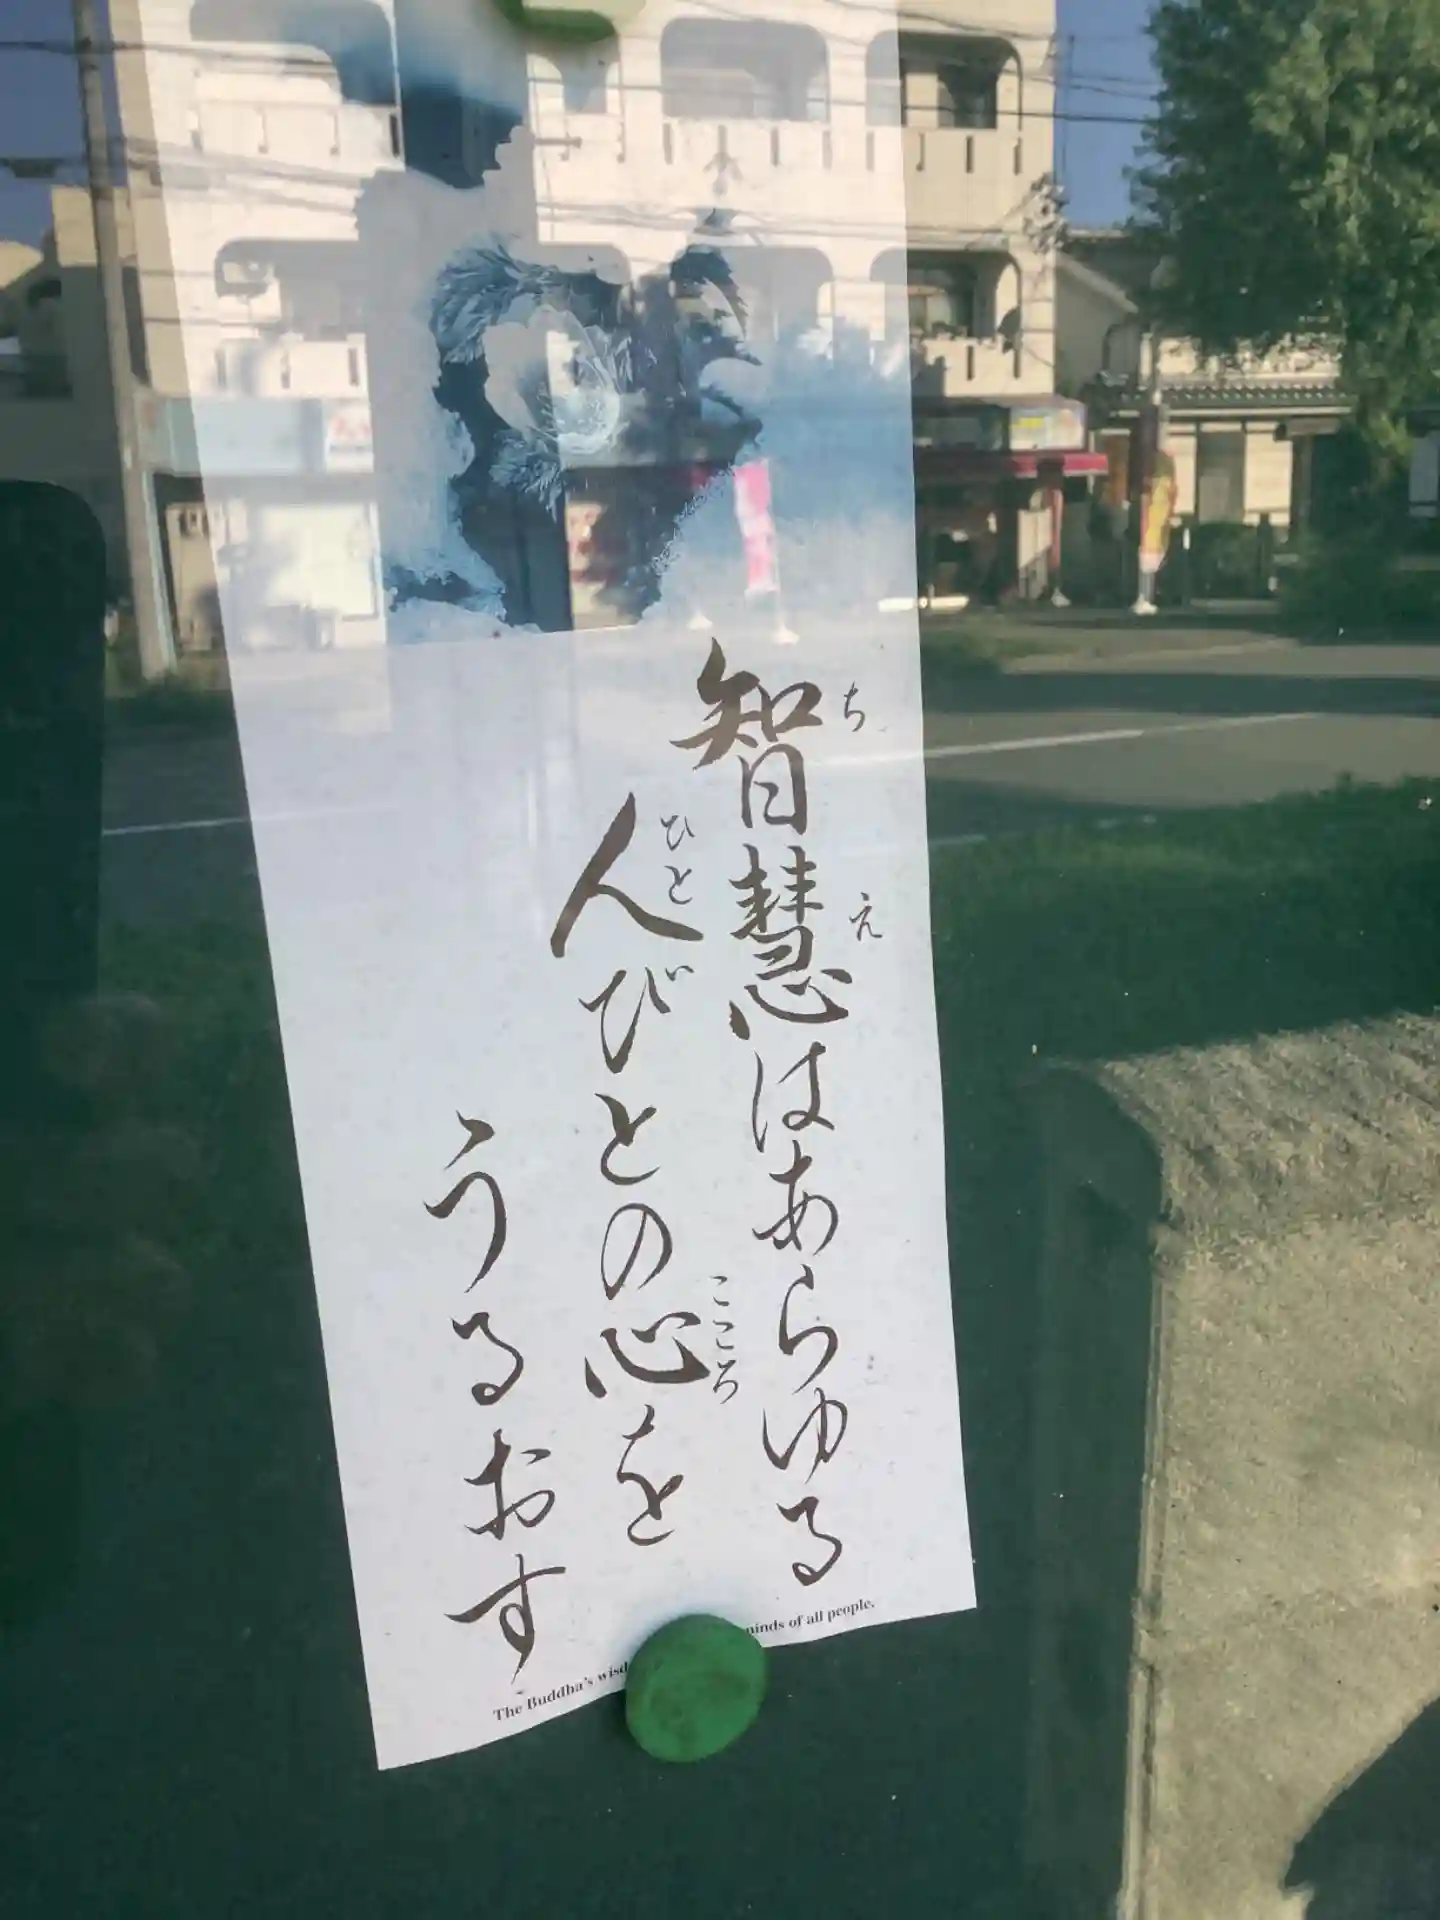 智慧はあらゆる
ちえ
人びとの心を
ひと
こころ
うるおす
The Buddha's
minds of all people.